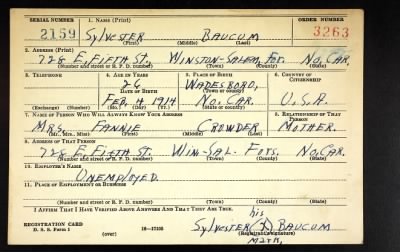 SERIAL NUMBER 1. NAME (Print) ORDER NUMBER
2159 SYLVESTER BAUCUM 3263
(First) (Middle) (Last)
2. ADDRESS (Print)
728 E. FIFTH ST., WINSTON-SALEM, FOR. NO. CAR.
(Number and street or R. F. D. number) (Town) (County) (State)
3. TELEPHONE 4. AGE IN YEARS 5. PLACE OF BIRTH 6. COUNTRY OF CITIZENSHIP
26 WADESBORO,
(Town or county)
DATE OF BIRTH
FEB. 4 1914 NO. CAR. U.S.A.
(Exchange) (Number) (Mo.) (Day) (Yr.) (State or country)
7. NAME OF PERSON WHO WILL ALWAYS KNOW YOUR ADDRESS 8. RELATIONSHIP OF THAT PERSON
MRS. FANNIE CROWDER MOTHER.
(Mr., Mrs., Miss) (First) (Middle) (Last)
9. ADDRESS OF THAT PERSON
728 E FIFTH ST. WIN-SAL. FORS. NO. CAR.
(Number and street or R. F. D. number) (Town) (County) (State)
10. EMPLOYER'S NAME
UNEMPLOYED.
11. PLACE OF EMPLOYMENT OR BUSINESS
(Number and street or R. F. D. number) (Town) (County) (State)
I AFFIRM THAT I HAVE VERIFIED ABOVE ANSWERS AND THAT THEY ARE TRUE.
his
SYLVESTER (X) BAUCUM
REGISTRATION CARD
D. S. S. Form 1 (over) 16—17105 (Registrant's signature)
MARK,